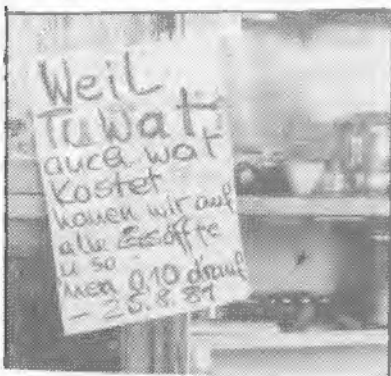 Weil
TuWat
auch wat
kostet
hauen wir auf
alle Gesöffte
u so
men 0.10 drauf
- 25.8.81